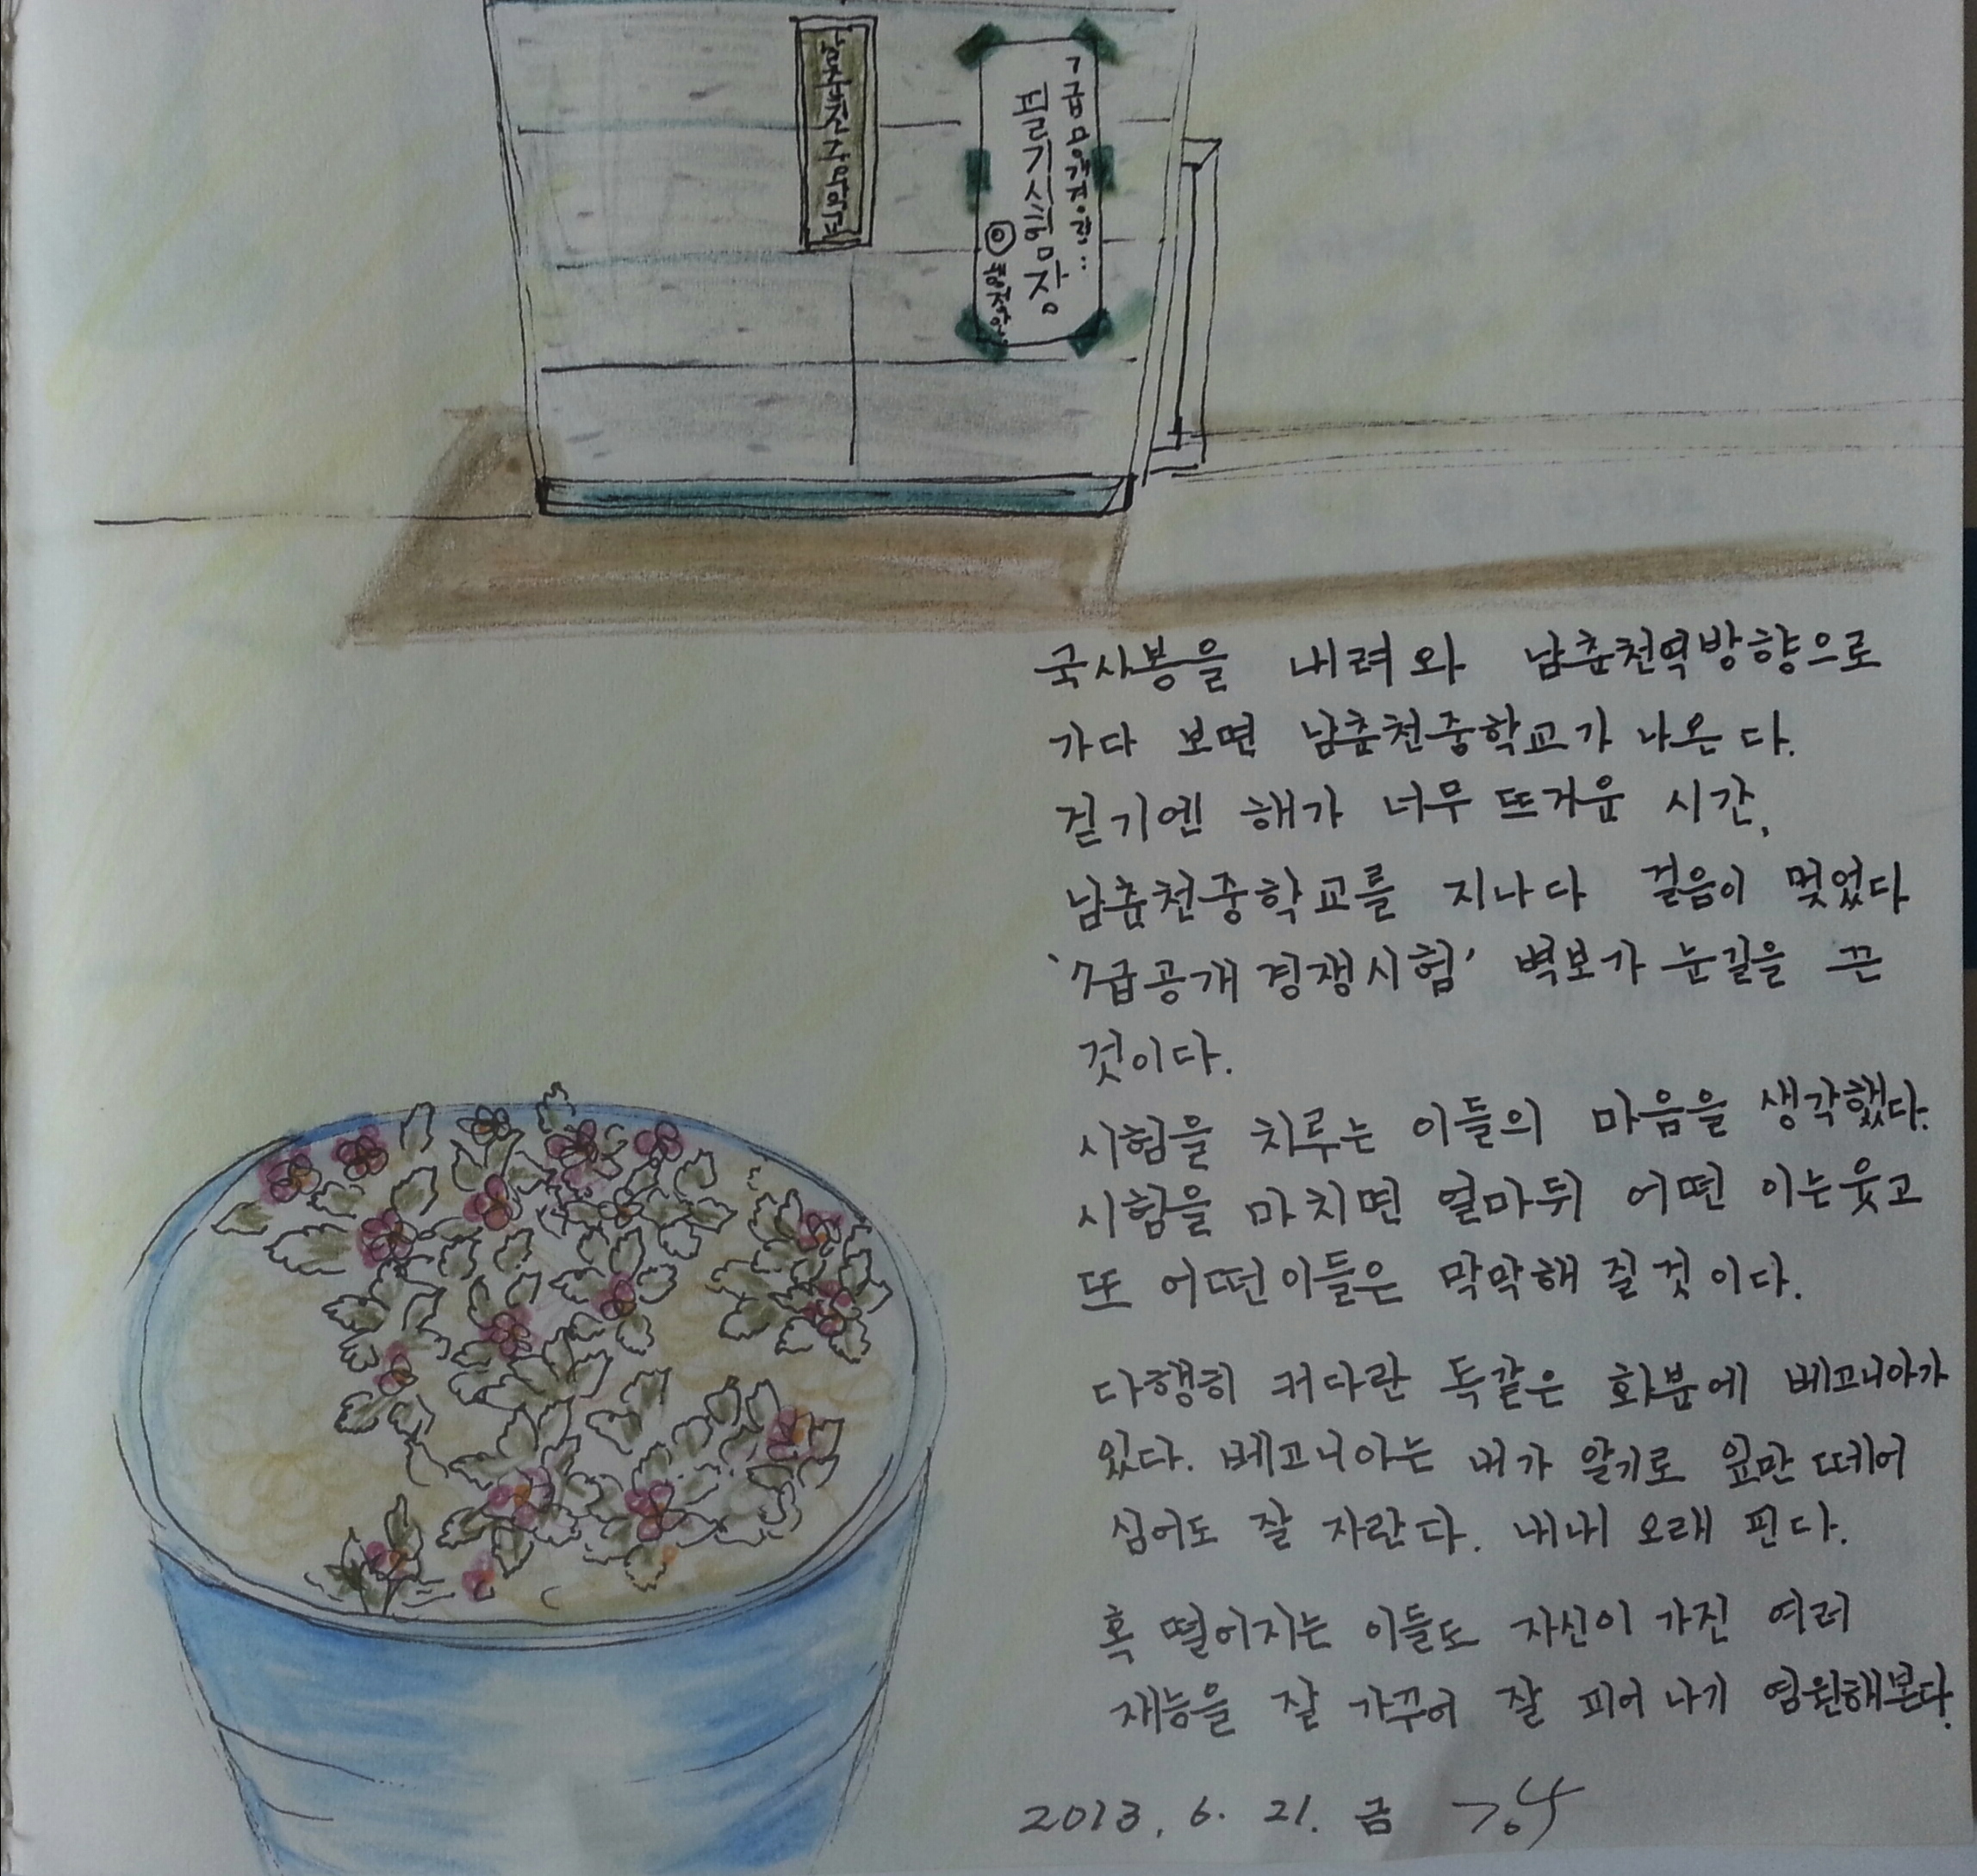 남춘천중학교
7급공개경쟁::
필기시험장
행정안
국사봉을 내려와 남춘천역방향으로
가다 보면 남춘천중학교가 나온다.
걷기엔 해가 너무 뜨거운 시간,
남춘천중학교를 지나다 걸음이 멎었다
'7급공개경쟁시험' 벽보가 눈길을 끈
것이다.
시험을 치루는 이들의 마음을 생각했다.
시험을 마치면 얼마뒤 어떤 이는 웃고
또 어떤이들은 막막해 질 것이다.
다행히 커다란 독같은 화분에 베고니아가
있다. 베고니아는 내가 알기로 잎만 떼어
심어도 잘 자란다. 내내 오래 핀다.
혹 떨어지는 이들도 자신이 가진 여러
재능을 잘 가꾸어 잘 피어나기 염원해본다.
2013. 6. 21. 금